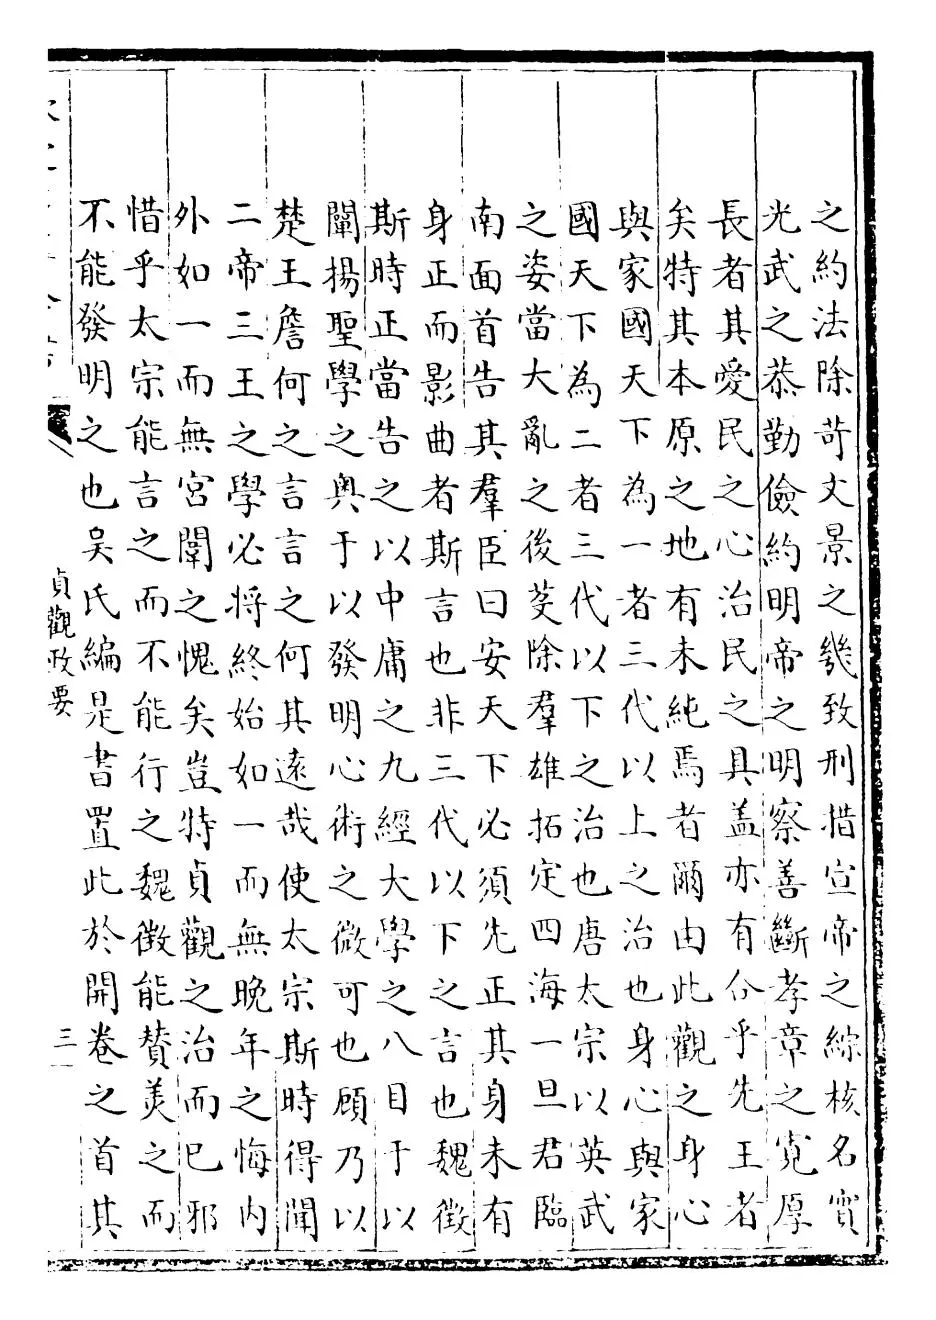 之約法除苛文景之幾致刑措宣帝之綜核名實
光武之恭勤儉約明帝之明察善斷孝章之寛厚
長者其愛民之心治民之具盖亦有合乎先王者
矣特其本原之地有未純焉者爾由此觀之身心
與家國天下為一者三代以上之治也身心與家
國天下為二者三代以下之治也唐太宗以英武
之姿當大亂之後芟除羣雄拓定四海一旦君臨
南面首告其羣臣曰安天下必須先正其身未有
身正而影曲者斯言也非三代以下之言也魏徵
斯時正當告之以中庸之九經大學之八目于以
闡揚聖學之奥于以發明心術之微可也顧乃以
楚王詹何之言言之何其遠哉使太宗斯時得聞
二帝三王之學必将終始如一而無晚年之悔内
外如一而無宮闈之愧矣豈特貞觀之治而已邪
惜乎太宗能言之而不能行之魏徴能賛美之而
不能發明之也吴氏編是書置此於開卷之首其
貞觀政要
三